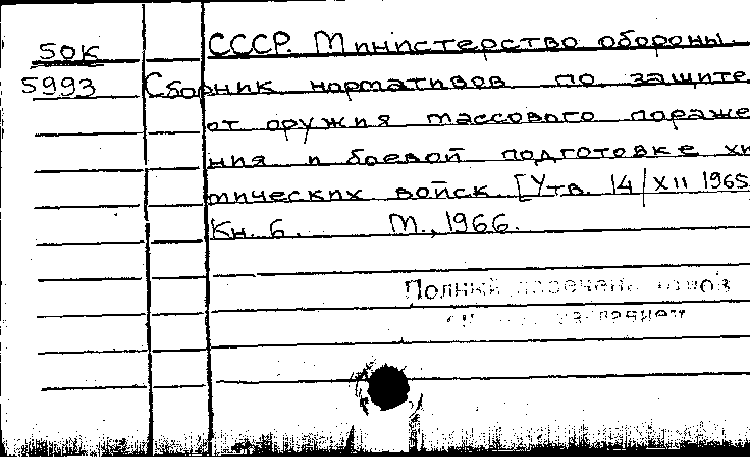 50К СССР. Министерство обороны.
5993 Сборник нормативов по защите
от оружия массового пораже
ния и боевой подготовке хи
мических войск [Утв. 14/XII 1965
Кн. 6. М., 1966.
Полный перечень